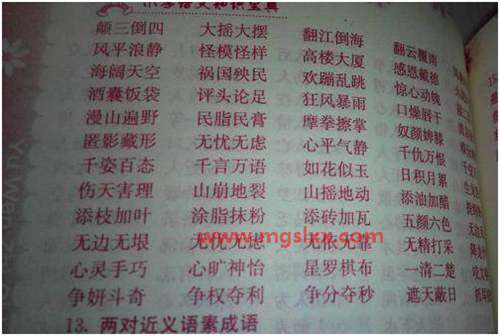 小学语文知识宝典
颠三倒四 大摇大摆 翻江倒海 翻云覆雨
风平浪静 怪模怪样 高楼大厦 感恩戴德
海阔天空 祸国殃民 欢蹦乱跳 惊心动魄
酒囊饭袋 评头论足 狂风暴雨 口燥唇干
漫山遍野 民脂民膏 摩拳擦掌 奴颜婢膝
匿影藏形 无忧无虑 心平气静 千仇万恨
千姿百态 千言万语 如花似玉 日积月累
伤天害理 山崩地裂 山摇地动 添油加醋
添枝加叶 涂脂抹粉 添砖加瓦 五颜六色
无边无垠 无忧无虑 无依无靠 无精打采
www.mgslxx.com
心灵手巧 心旷神怡 星罗棋布 一清二楚
争妍斗奇 争权夺利 争分夺秒 遮天蔽日
13. 两对近义语素成语